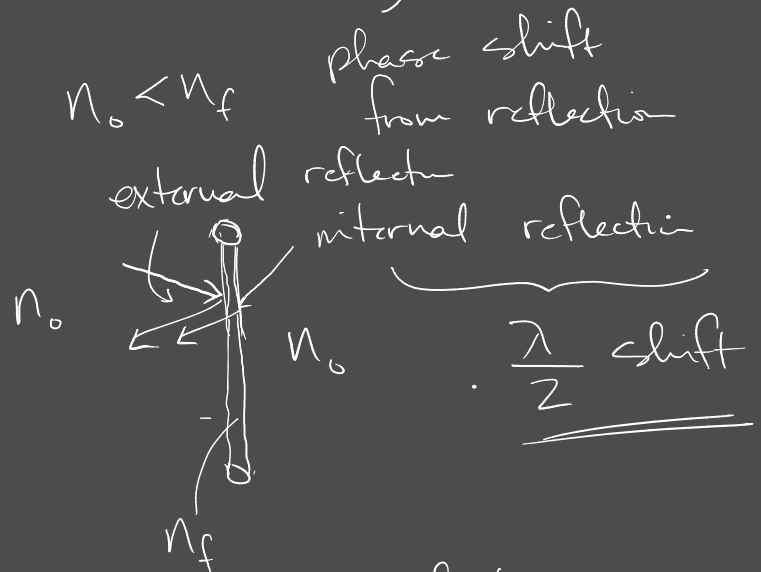 phase shift
n₀ < n_f
from reflection
external reflectn
internal reflection
n₀
n₀
λ/2 shift
n_f